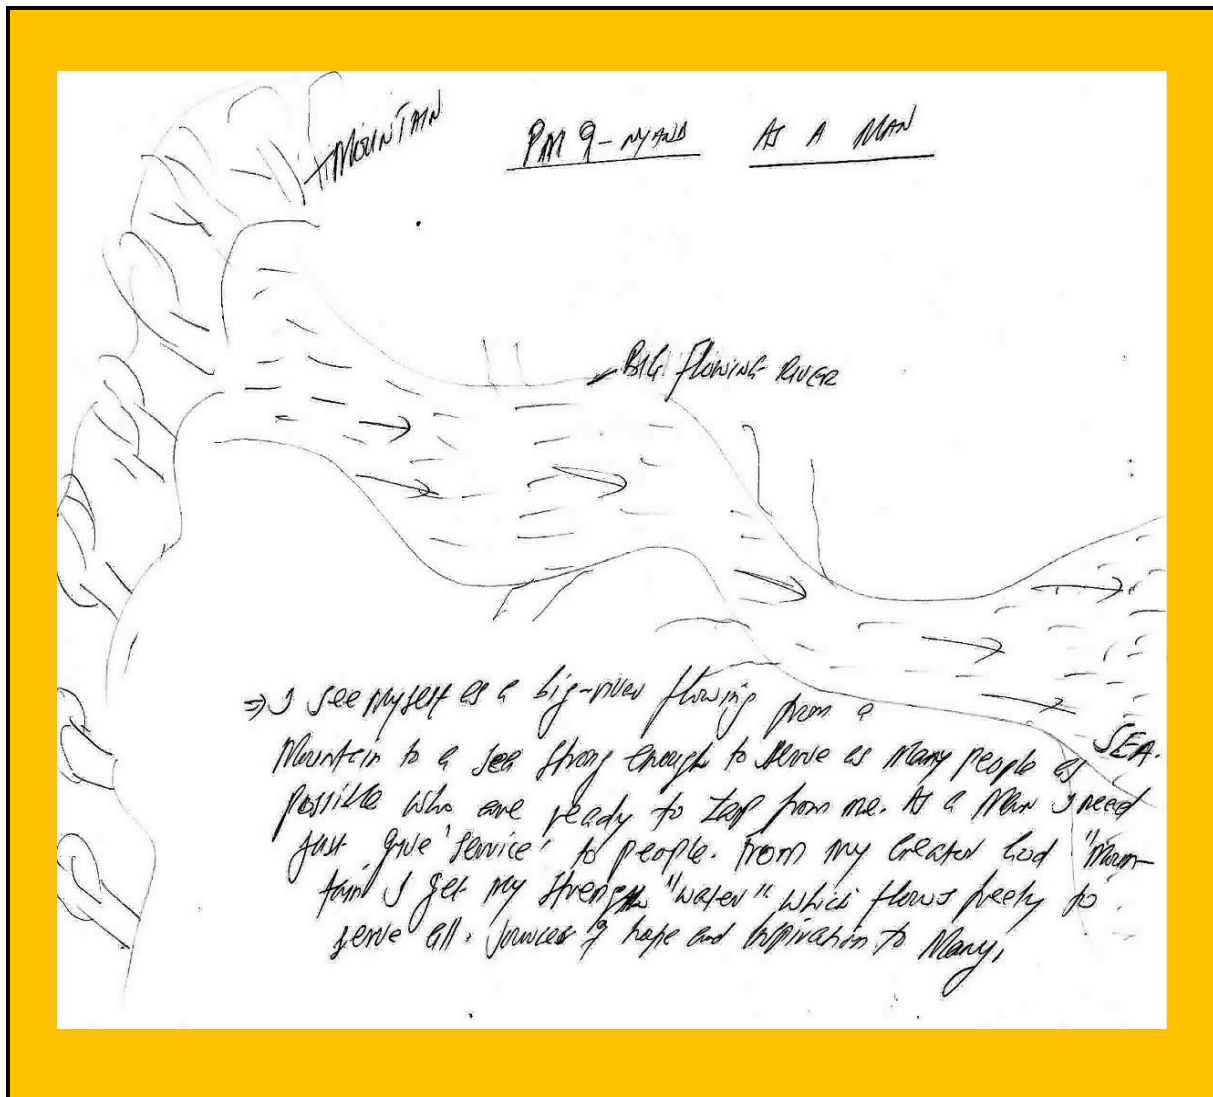 MOUNTAIN
PM 9-NYAND AS A MAN
BIG FLOWING RIVER
⇒ I see myself as a big-river flowing from a
Mountain to a sea strong enough to serve as many people as
SEA.
possible who are ready to tap from me. As a Man I need
just give 'service' to people. From my Creator God "Moun-
tain" I get my strength "water" which flows freely to
serve all. Sources of hope and inspiration to Many,